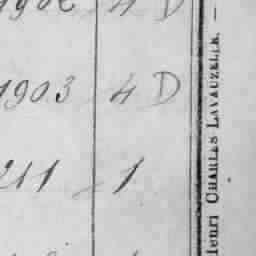 1902 4 D
1903 4 D
211 1
Henri CHARLES LAVAUZELLE. —